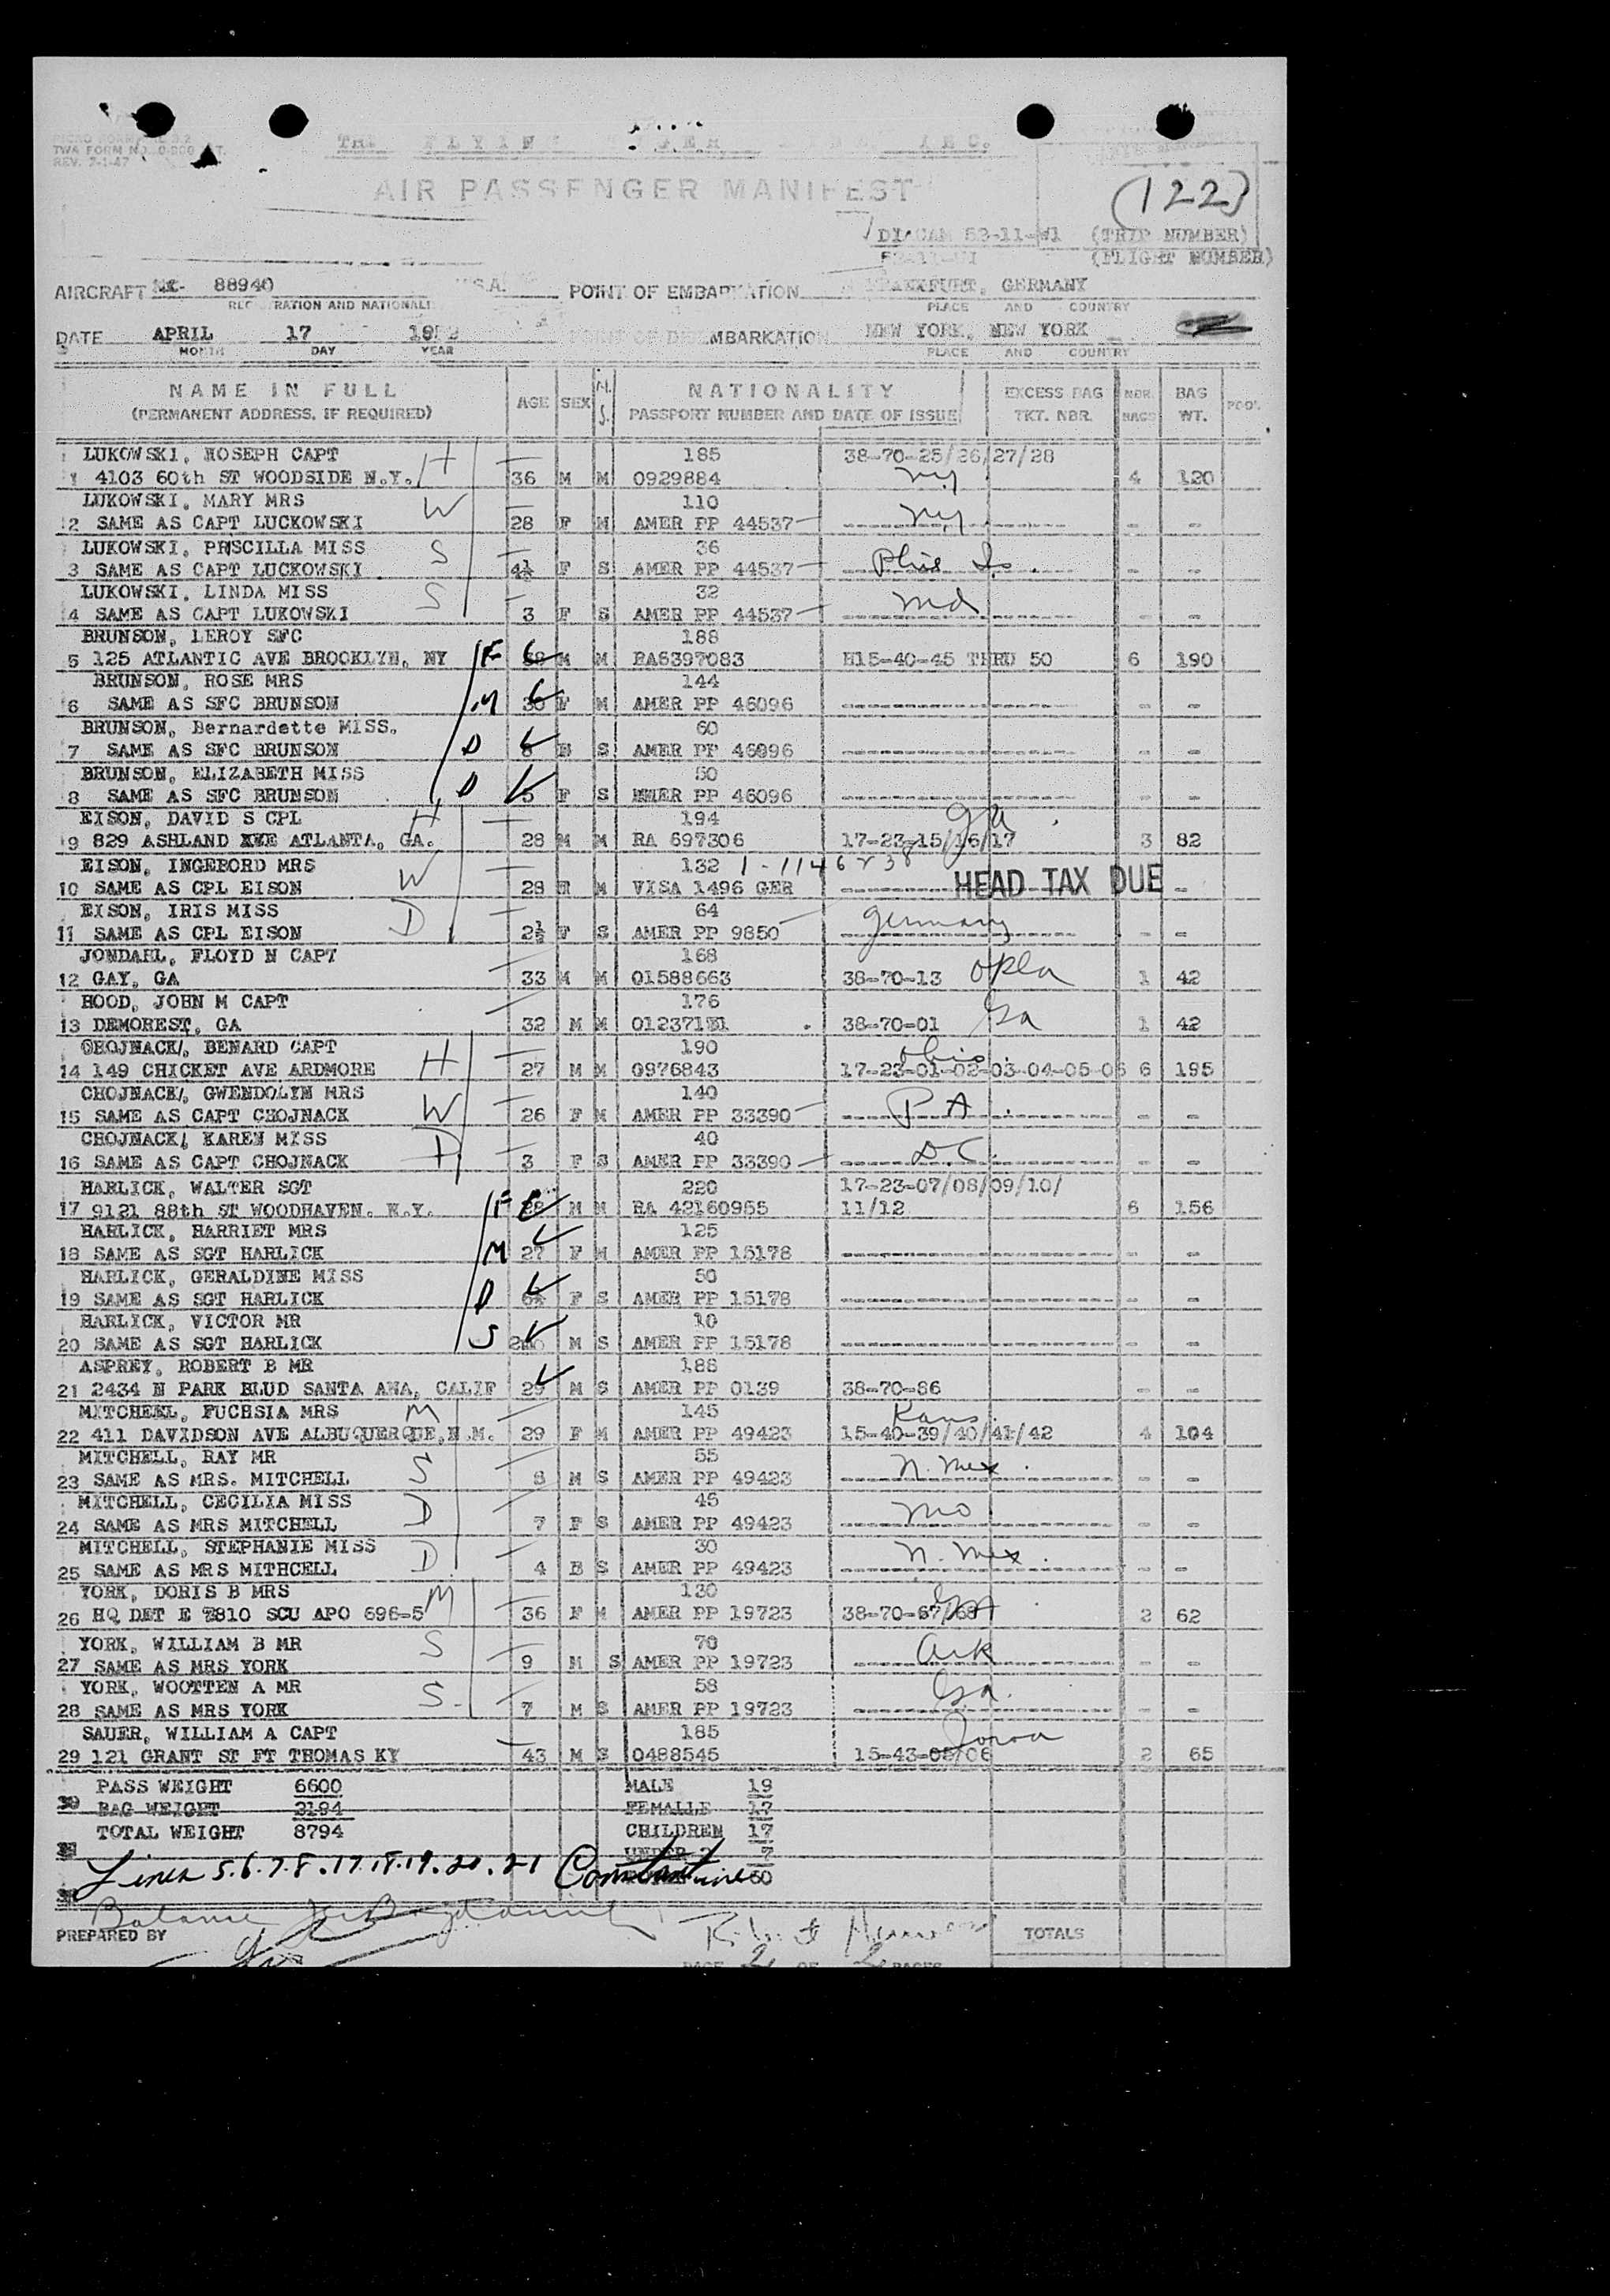 TWA FORM NO.
REV. 7-1-47
THE FLYING
AIR PASSENGER MANIFEST
(122)
(TRIP NUMBER)
(FLIGHT NUMBER)
AIRCRAFT 88940 U.S.A. POINT OF EMBARKATION FRANKFURT, GERMANY
PLACE AND COUNTRY
DATE APRIL 17 POINT OF DISEMBARKATION NEW YORK, NEW YORK
MONTH DAY YEAR PLACE AND COUNTRY
NAME IN FULL AGE SEX M. S. NATIONALITY EXCESS BAG NBR. BAG
(PERMANENT ADDRESS, IF REQUIRED) PASSPORT NUMBER AND DATE OF ISSUE TKT. NBR. BAGS WT.
LUKOWSKI, ROSEPH CAPT H 185 38-70-25/26/27/28
1 4103 60th ST WOODSIDE N.Y. 36 M M 0929884 NY 4 120
LUKOWSKI, MARY MRS W 110
2 SAME AS CAPT LUCKOWSKI 28 F M AMER PP 44537 NY - -
LUKOWSKI, PRISCILLA MISS S 36
3 SAME AS CAPT LUCKOWSKI 4½ F S AMER PP 44537 - -
LUKOWSKI, LINDA MISS S 32
4 SAME AS CAPT LUKOWSKI 3 F S AMER PP 44537 Md - -
BRUNSON, LEROY SFC 188
5 125 ATLANTIC AVE BROOKLYN, NY F M M RA6397083 H15-40-45 THRU 50 6 190
BRUNSON, ROSE MRS 144
6 SAME AS SFC BRUNSON M F M AMER PP 46096 - -
BRUNSON, Bernardette MISS. 60
7 SAME AS SFC BRUNSON D S AMER PP 46096 - -
BRUNSON, ELIZABETH MISS 50
8 SAME AS SFC BRUNSON D 5 F S AMER PP 46096
EISON, DAVID S CPL H 194 GA
9 829 ASHLAND AVE ATLANTA, GA. 28 M M RA 697306 17-23-15/16/17 3 82
EISON, INGEBORD MRS 132
10 SAME AS CPL EISON W 28 M VISA 1496 GER HEAD TAX DUE -
EISON, IRIS MISS D 64 Germany
11 SAME AS CPL EISON 2½ F S AMER PP 9850 - -
JONDAHL, FLOYD N CAPT 168
12 GAY, GA 33 M M 01588663 38-70-13 Okla 1 42
HOOD, JOHN M CAPT 176
13 DEMOREST, GA 32 M M 38-70-01 Ga 1 42
CHOJNACK, BENARD CAPT 190 Ohio
14 149 CHICKET AVE ARDMORE H 27 M M 0976843 17-23-01-02-03-04-05-06 6 195
CHOJNACK, GWENDOLYN MRS 140
15 SAME AS CAPT CHOJNACK W 26 F M AMER PP 33390 PA - -
CHOJNACK, KAREN MISS 40
16 SAME AS CAPT CHOJNACK D 3 F S AMER PP 33390 D.C. - -
HARLICK, WALTER SGT 220 17-23-07/08/09/10/
17 9121 88th ST WOODHAVEN. N.Y. F 28 M M RA 42160955 11/12 6 156
HARLICK, HARRIET MRS 125
18 SAME AS SGT HARLICK M 27 F M AMER PP 15178 - -
HARLICK, GERALDINE MISS 50
19 SAME AS SGT HARLICK D F S AMER PP 15178 - -
HARLICK, VICTOR MR 10
20 SAME AS SGT HARLICK S M S AMER PP 15178 - -
ASPREY, ROBERT B MR 188
21 2434 N PARK BLUD SANTA ANA, CALIF 29 M S AMER PP 0139 38-70-86 - -
MITCHELL, FUCHSIA MRS M 145 Kans.
22 411 DAVIDSON AVE ALBUQUERQUE, N.M. 29 F M AMER PP 49423 15-40-39/40/41/42 4 104
MITCHELL, RAY MR 55
23 SAME AS MRS. MITCHELL S 8 M S AMER PP 49423 N. Mex. - -
MITCHELL, CECILIA MISS 45
24 SAME AS MRS MITCHELL D 7 F S AMER PP 49423 Mo - -
MITCHELL, STEPHANIE MISS 30
25 SAME AS MRS MITHCELL D 4 S AMER PP 49423 N. Mex. - -
YORK, DORIS B MRS M 130
26 HQ DET E 7810 SCU APO 696-5 36 F M AMER PP 19723 38-70-67/68 2 62
YORK, WILLIAM B MR S 70 Ark
27 SAME AS MRS YORK 9 M S AMER PP 19723 - -
YORK, WOOTTEN A MR S 58 Ga.
28 SAME AS MRS YORK 7 M S AMER PP 19723 - -
SAUER, WILLIAM A CAPT 185 Iowa
29 121 GRANT ST FT THOMAS KY 43 M S 0488545 15-43-05/06 2 65
PASS WEIGHT 6600 MALE 19
30 BAG WEIGHT 2194 FEMALLE 17
TOTAL WEIGHT 8794 CHILDREN 17
UNDER 2 7
Lines 5.6.7.8.17.18.19.20.21 Constantine 60
Balance
PREPARED BY TOTALS
PAGE 2 OF 2 PAGES